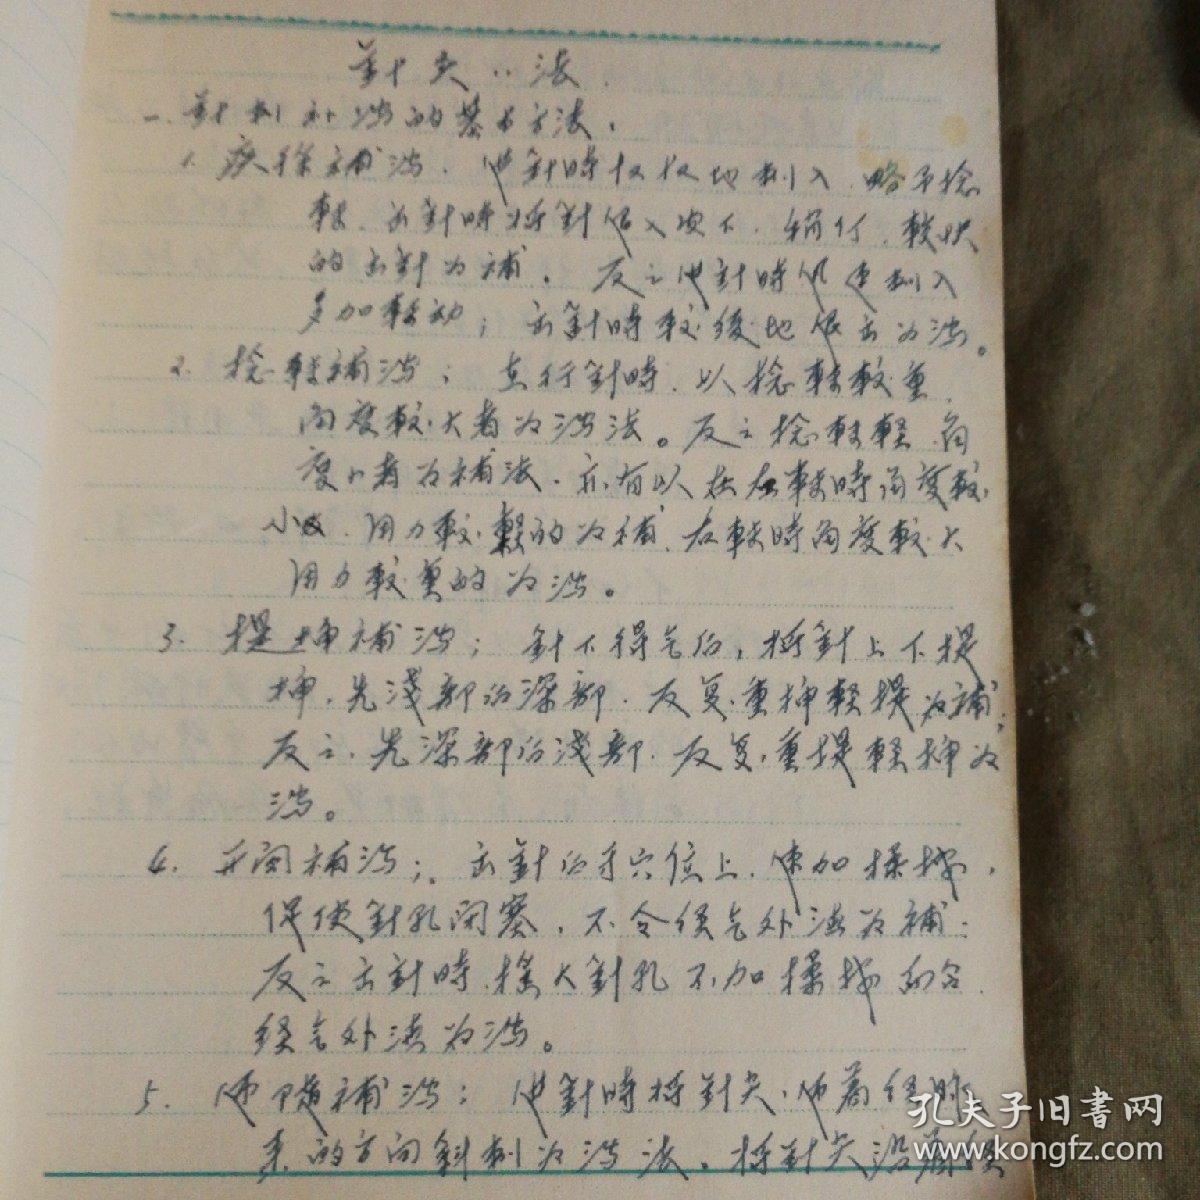 針灸法
一.針刺补泻的基本方法.
1.疾徐補泻.進針時仅仅地刺入.略不捻
轉.出針時将針退入皮下.稍停.較快
的出針为補.反之進針時迅速刺入
多加轉动;出針時較緩地退出为泻。
2.捻轉補泻;在行針時.以捻轉較重.
角度較大者为泻法。反之捻轉輕.角
度小者为補法.亦有以在左轉時角度較
小.用力較輕的为補.右轉時角度較大
用力較重的为泻。
3.提挿補泻;針下得气后,将針上下提
挿,先淺部后深部.反复重挿輕提为補;
反之.先深部后淺部.反复重提輕挿为
泻。
4.开闭補泻;出針后于穴位上.速加揉按,
促使針孔闭塞.不令经气外洩为補.
反之出針時.搖大針孔不加揉按而令.
经气外洩为泻。
5.迎隨補泻:進針時将針尖.迎着经脉
来的方向斜刺为泻法.将針尖沿着经
孔夫子旧书网
www.kongfz.com